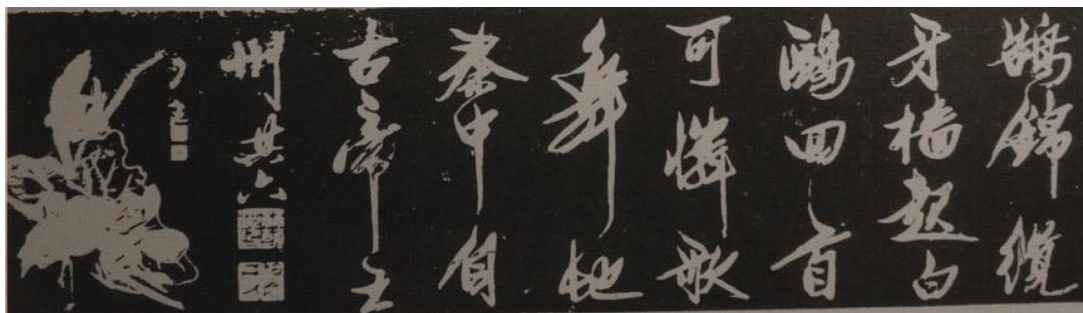 鵠錦纜
牙檣起白
鷗回首
可憐歌
舞地
秦中自
古帝王
州其六